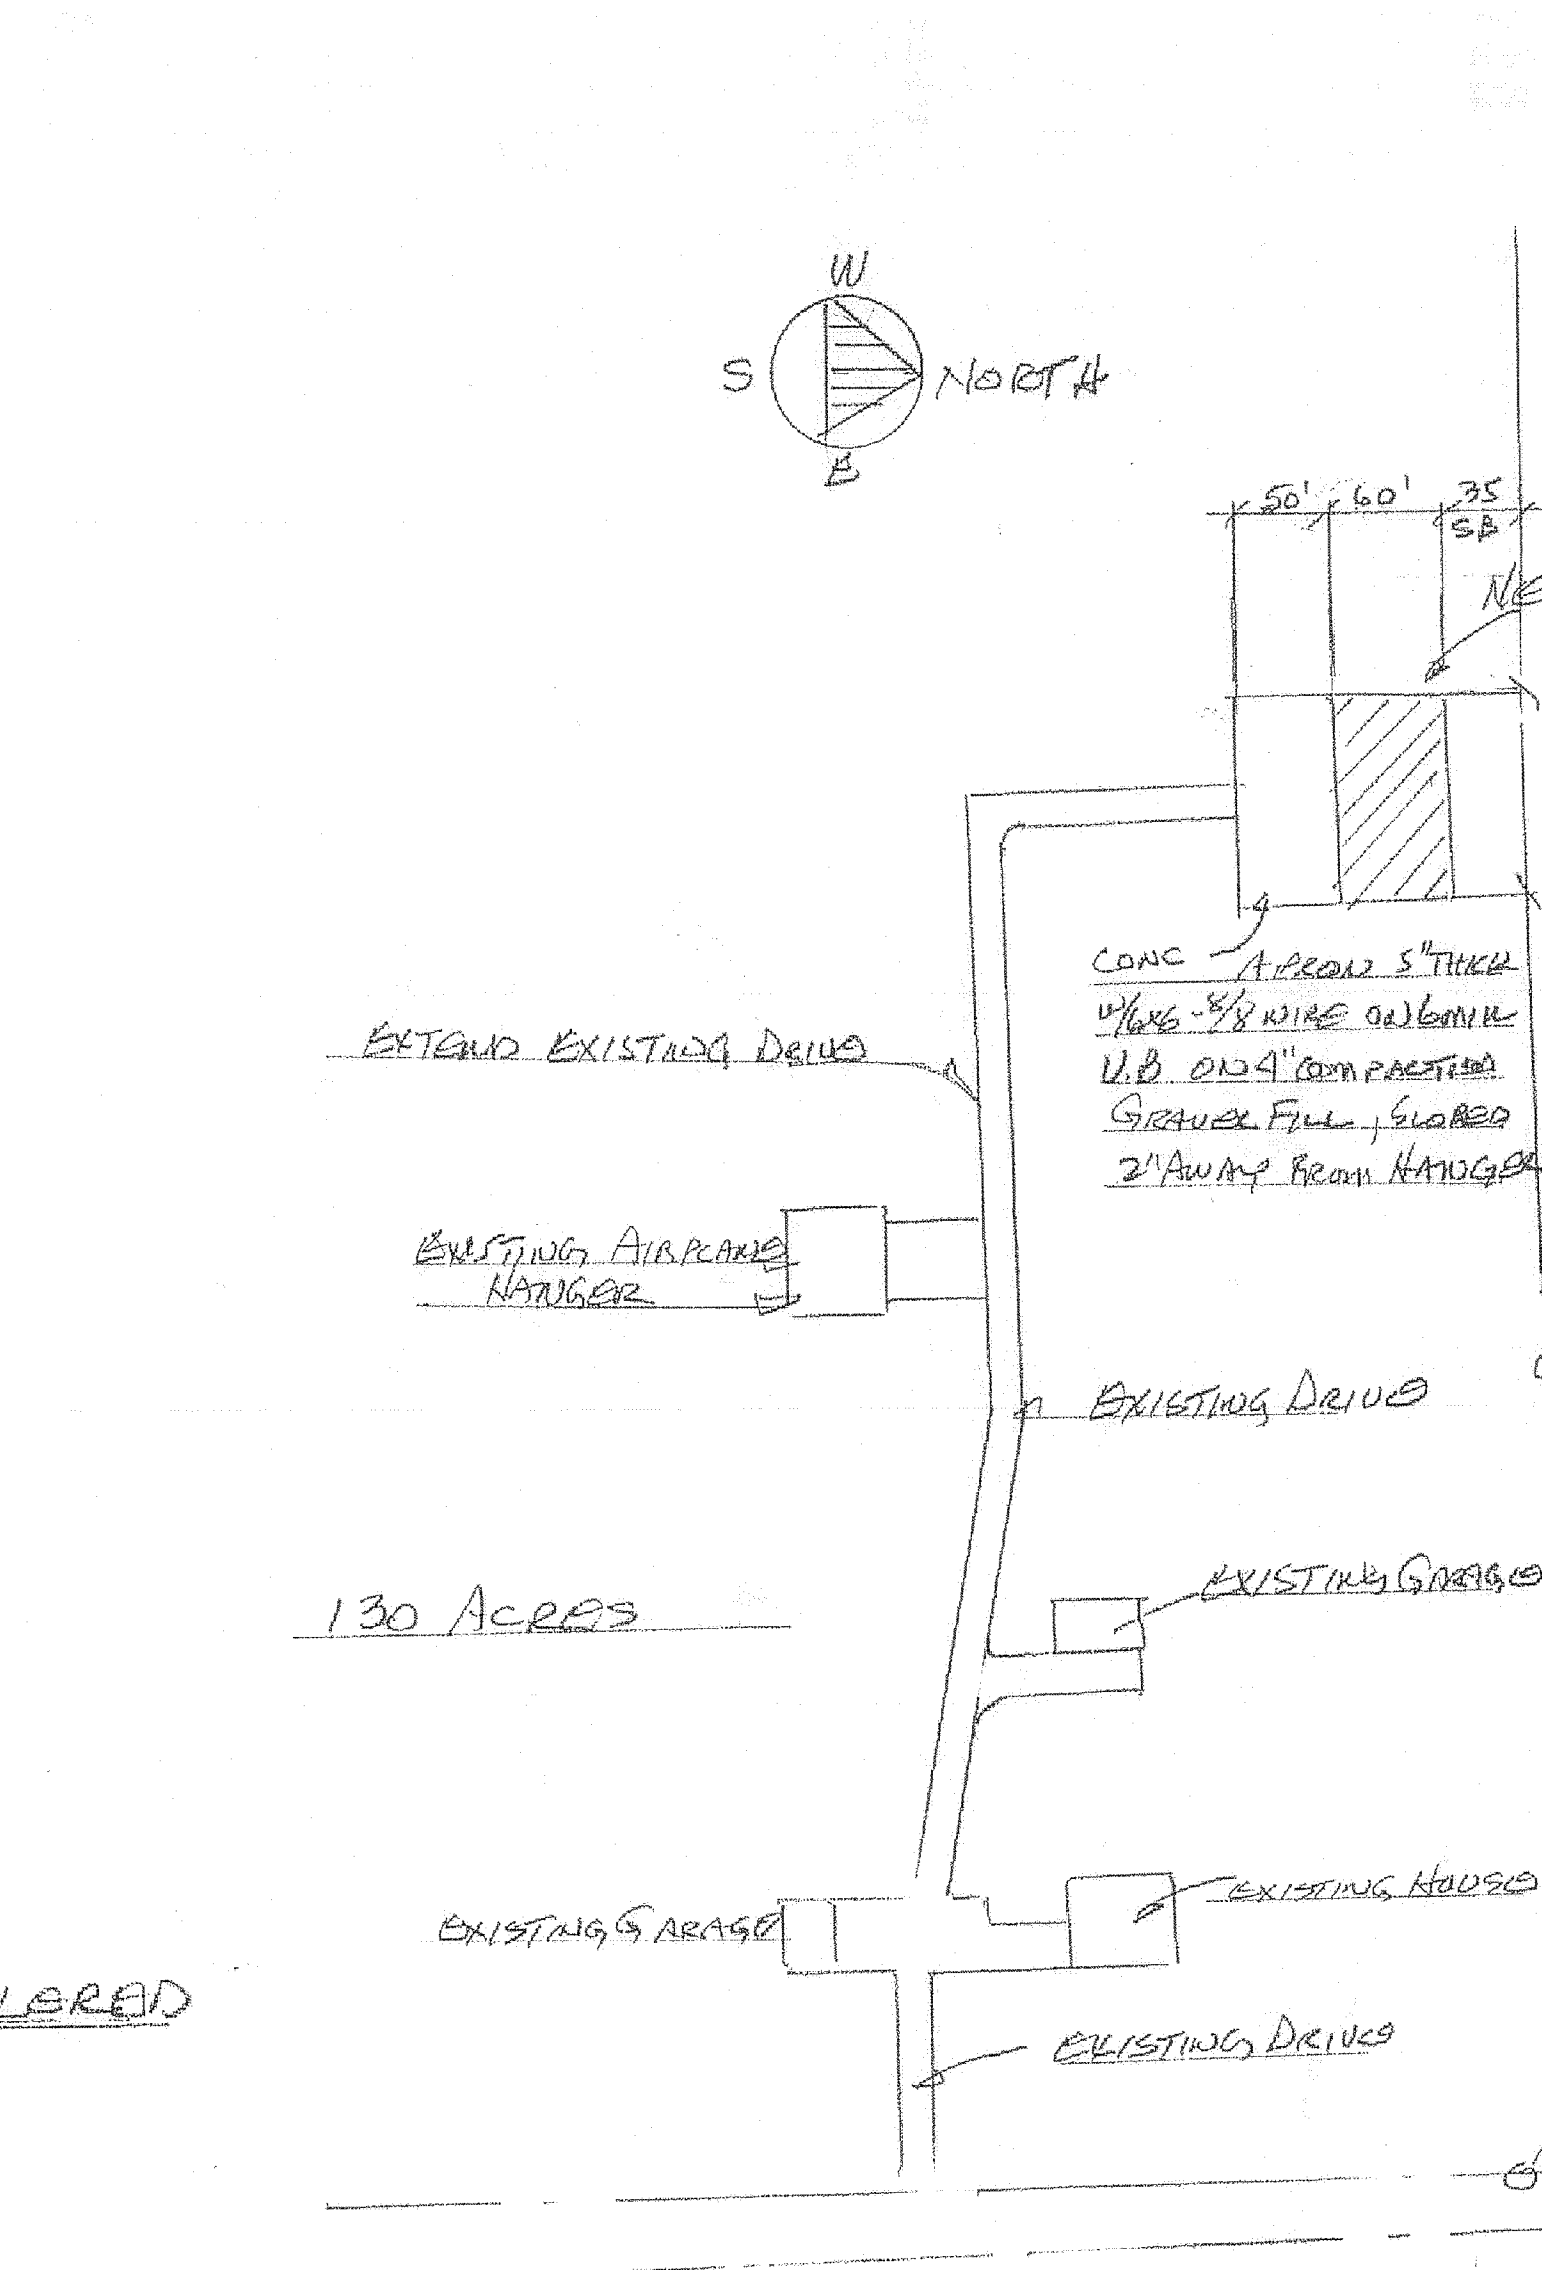 W
S
NORTH
E
50' 60' 35
SB
NE
CONC APRON 5" THICK
W/6x6-8/8 WIRE ON 6 MIL
V.B ON 4" COMPACTED
GRAVEL FILL, SLOPED
2" AWAY FROM HANGER
EXTEND EXISTING DRIVE
EXISTING AIRPLANE
HANGER
EXISTING DRIVE
EXISTING GARAGE
130 ACRES
EXISTING HOUSE
EXISTING GARAGE
LERED
EXISTING DRIVE